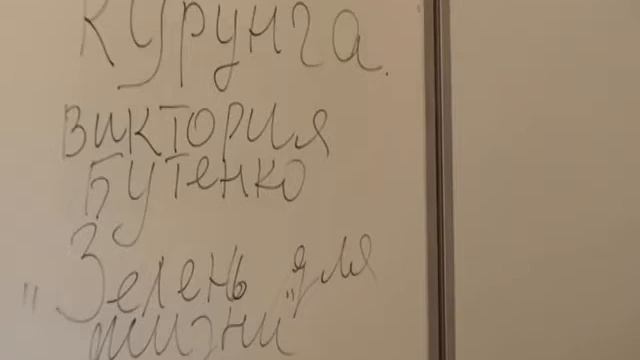 Курунга.
Виктория
Бутенко
"Зелень для
жизни"